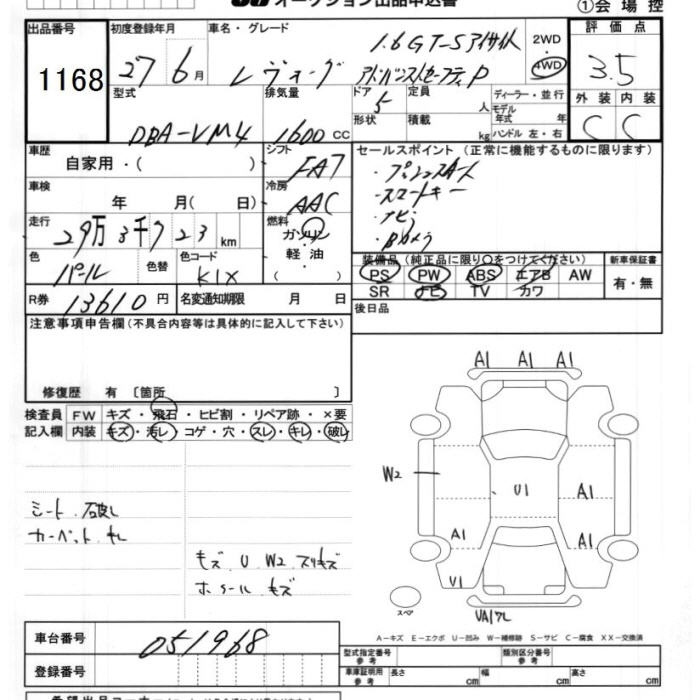 オークション出品申込書
①会場控
出品番号
1168
初度登録年月
27年 6月
車名・グレード
レヴォーグ
1.6 GT-Sアイサイト
アドバンストセーフティP
2WD
4WD
評価点
3.5
型式
DBA-VM4
排気量
1600 CC
ドア
5
形状
定員
人
積載
kg
ディーラー・並行
モデル年式
年
ハンドル 左・右
外装
内装
C
C
車歴
自家用・( )
シフト
FA7
セールスポイント (正常に機能するものに限ります)
・プッシュスタート
・スマートキー
・ナビ
・Bカメラ
車検
年 月( 日)
冷房
AAC
走行
29万3千723 km
燃料
ガソリン
軽油
( )
色
パール
色替
色コード
K1X
装備品 (純正品に限り○をつけてください)
PS PW ABS エアB AW
SR ナビ TV カワ
新車保証書
有・無
R券
13610円
名変通知期限
月 日
後日品
注意事項申告欄(不具合内容等は具体的に記入して下さい)
修復歴 有 〔箇所 〕
検査員
記入欄
FW キズ・飛石・ヒビ割・リペア跡・×要
内装 キズ・汚レ・コゲ・穴・スレ・キレ・破レ
シート 破レ
カーペット キレ
キズ U W2 スリキズ
ホイール キズ
A1 A1 A1
W2
U1
A1
A1
A1
U1
スペア
A-キズ E-エクボ U-凹み W-補修跡 S-サビ C-腐食 XX-交換済
車台番号
051968
登録番号
型式指定番号
参考
類別区分番号
参考
車庫証明用
参考
長さ cm
幅 cm
高さ cm